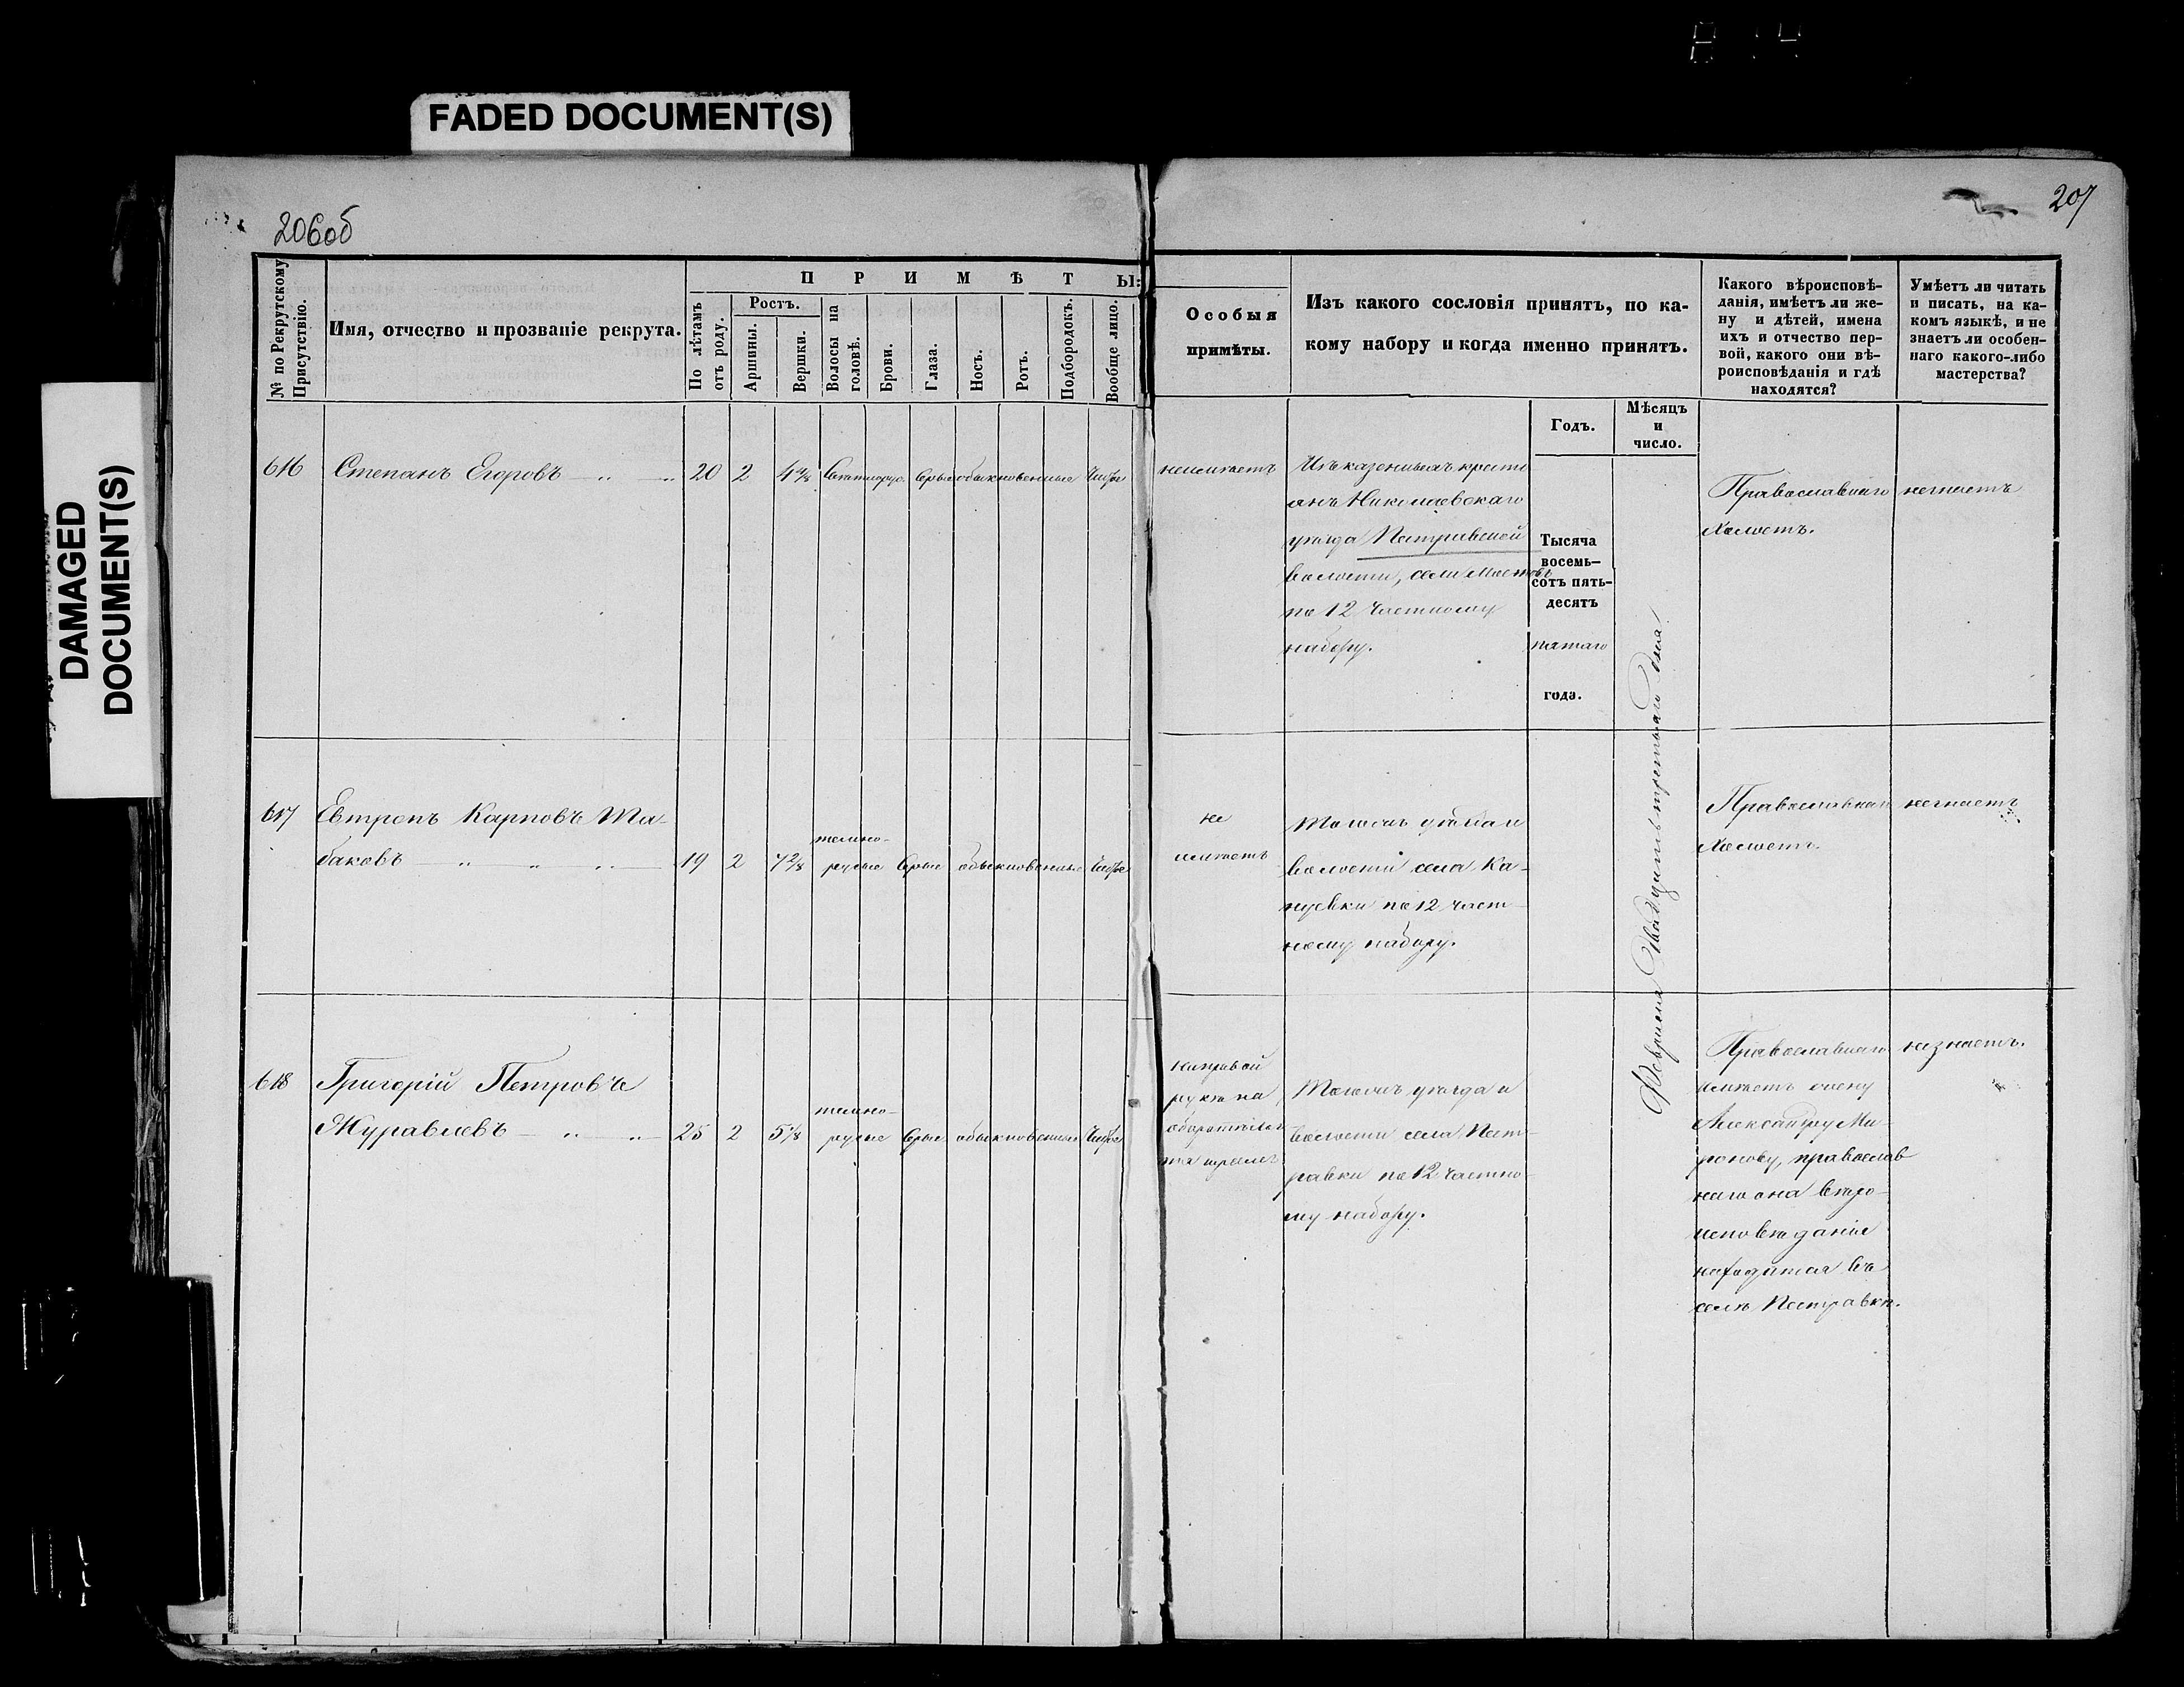 FADED DOCUMENT(S)
DAMAGED
DOCUMENT(S)
206об
207
№ по Рекрутскому
Присутствію.
Имя, отчество и прозваніе рекрута.
ПРИМѢТЫ:
По лѣтамъ
отъ роду.
Ростъ.
Аршины.
Вершки.
Волосы на
головѣ.
Брови.
Глаза.
Носъ.
Ротъ.
Подбородокъ.
Вообще лицо.
Особыя
примѣты.
Изъ какого сословія принятъ, по ка-
кому набору и когда именно принятъ.
Годъ.
Мѣсяцъ
и
число.
Какого вѣроисповѣ-
данія, имѣетъ ли же-
ну и дѣтей, имена
ихъ и отчество пер-
вой, какого они вѣ-
роисповѣданія и гдѣ
находятся?
Умѣетъ ли читать
и писать, на ка-
комъ языкѣ, и не
знаетъ ли особен-
наго какого-либо
мастерства?
616 Степанъ Егоровъ 20 2 4 4/8 Сѣрые обыкновенные Чистое
неимѣетъ
Изъ казенныхъ кресть
янъ Николаевскаго
уѣзда Пестравской
волости, села Мостовъ
по 12 Частному
набору.
Тысяча
восемь-
сотъ пять-
десятъ
пятаго
года.
Февраля Двадцать третьяго дня
Православнаго
Холостъ.
незнаетъ
617 Евтропъ Карповъ Та-
баковъ 19 2 4 2/8 темно-
русые Сѣрые обыкновенные Чистое
не
имѣетъ
Тогожъ уѣзда и
волости села Ка-
пуевки по 12 част-
ному набору.
Православнаго
Холостъ.
незнаетъ
618 Григорій Петровъ
Журавлевъ 25 2 5 1/8 темно-
русые Сѣрые обыкновенные Чистое
направой
рукѣ на
Тогожъ уѣзда и
волости села Пест-
равки по 12 Частно-
му набору.
Православнаго
имѣетъ жену
Александру Ми-
ронову, православ
наго она вѣро-
исповѣданія
находится въ
селѣ Пестравкѣ.
незнаетъ.